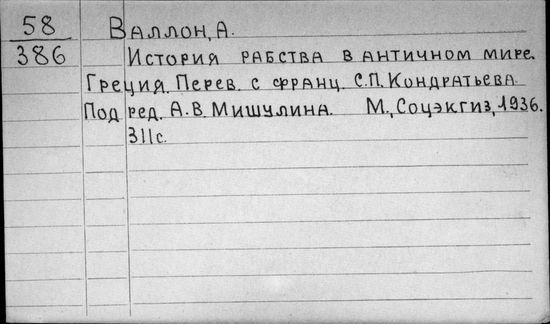 58
386
Валлон, А.
История рабства в античном мире.
Греция. Перев. с франц. С.П. Кондратьева.
Под ред. А.В. Мишулина. М., Соцэкгиз, 1936.
311с.